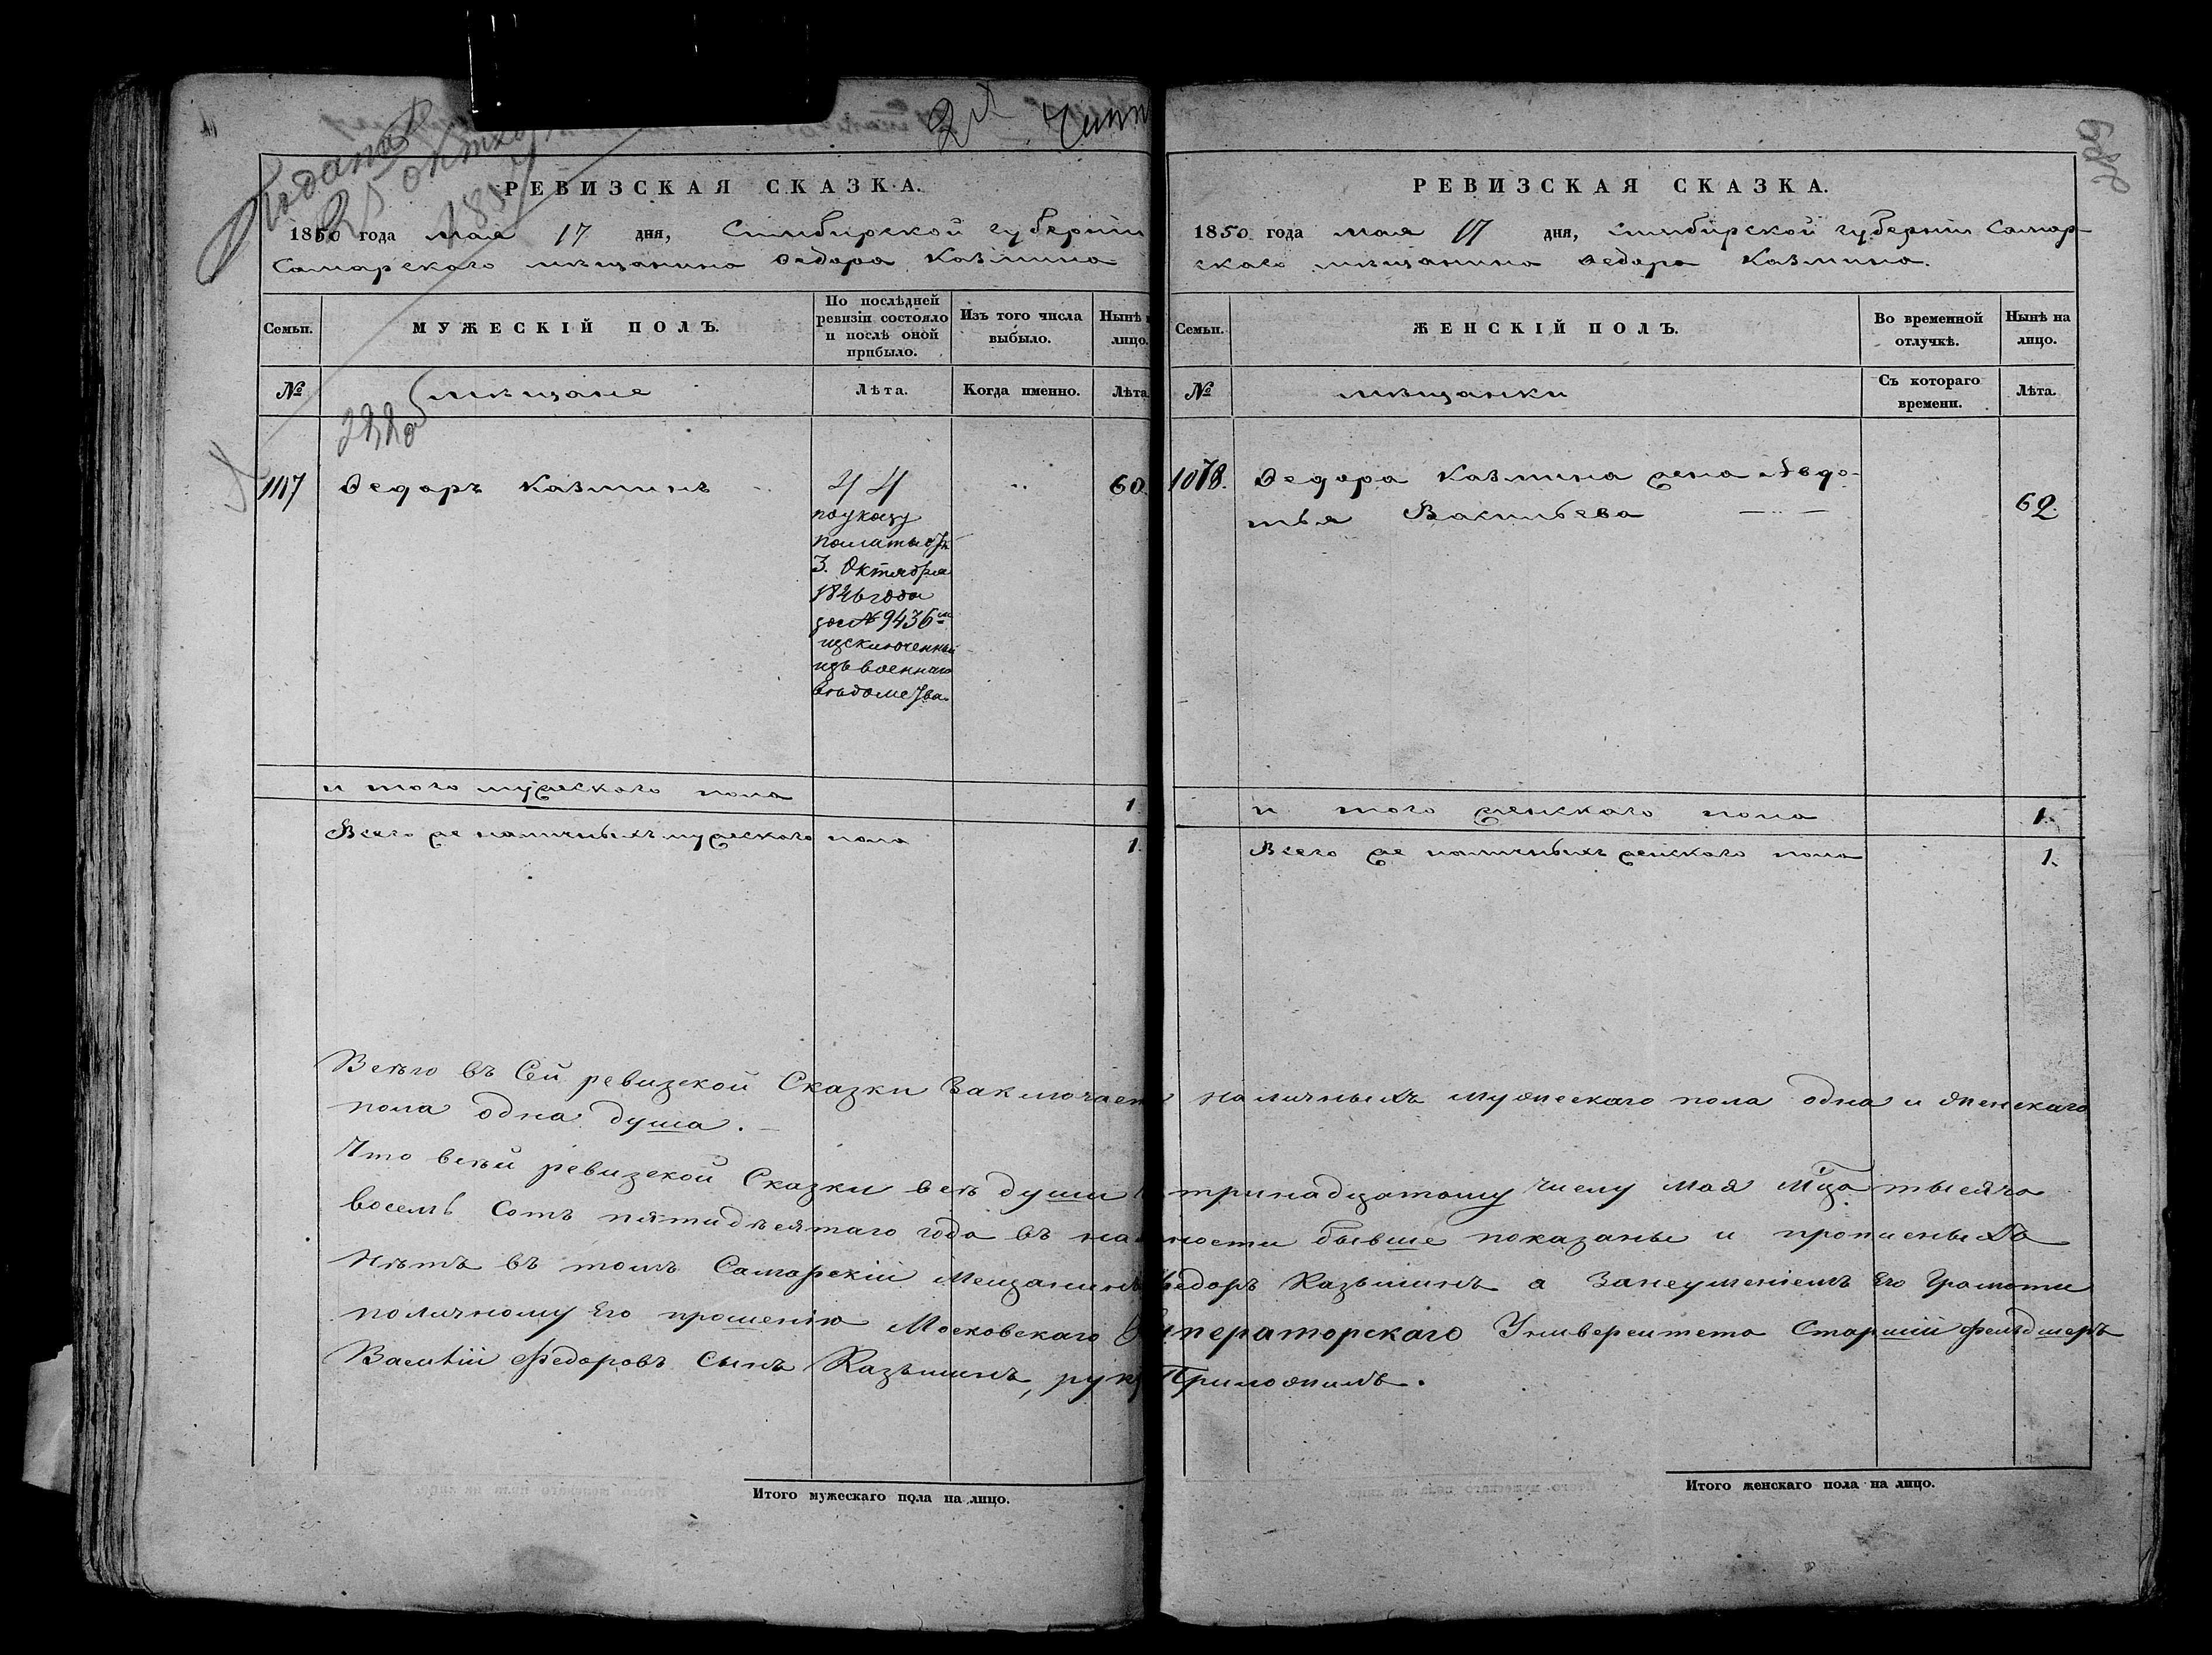 Подана
25 октяб
1850
2й Гил
РЕВИЗСКАЯ СКАЗКА.
1850 года мая 17 дня, Симбирской губернии
Самарского мѣщанина Ѳедора Казмина
Семьи.
МУЖЕСКІЙ ПОЛЪ.
По послѣдней
ревизіи состояло
и послѣ оной
прибыло.
Изъ того числа
выбыло.
Нынѣ
лицо.
№
мѣщане
Лѣта.
Когда именно.
Лѣта
1117
Ѳедоръ Казминъ
44
по указу
палаты отъ
3. Октября
1846 года
за № 9436м
изключенный
изъ военнаго
вѣдомства.
60.
и того мужескаго пола
1.
Всего же наличныхъ мужескаго пола
1.
689
РЕВИЗСКАЯ СКАЗКА.
1850 года мая 17 дня, Симбирской губерніи Самар-
скаго мѣщанина Ѳедора Казмина.
Семьи.
ЖЕНСКІЙ ПОЛЪ.
Во временной
отлучкѣ.
Нынѣ на
лицо.
№
мѣщанки
Съ котораго
времени.
Лѣта.
1078.
Ѳедора Казмина жена Авдо-
тья Васильева
62.
и того женскаго пола
1.
Всего же наличныхъ женскаго пола
1.
Всѣго въ сей ревизской Сказки Заключается наличныхъ мужескаго пола одна и женскаго
пола одна душа.
Что всѣй ревизской Сказки всѣ души к тринадцатому числу Мая Мца тысяча
восемь Сотъ пятидѣсятаго года въ на ности бывше показаны и прописныхъ
Нѣтъ въ томъ Самарскій Мещанинъ Федоръ Казьминъ а Занеумѣніемъ Его Грамоти
поличному Его прошенію Московскаго Императорскаго Университета Старшій фельдшеръ
Василій Федоровъ Сынъ Казьминъ, руку Приложилъ.
Итого мужескаго пола на лицо.
Итого женскаго пола на лицо.